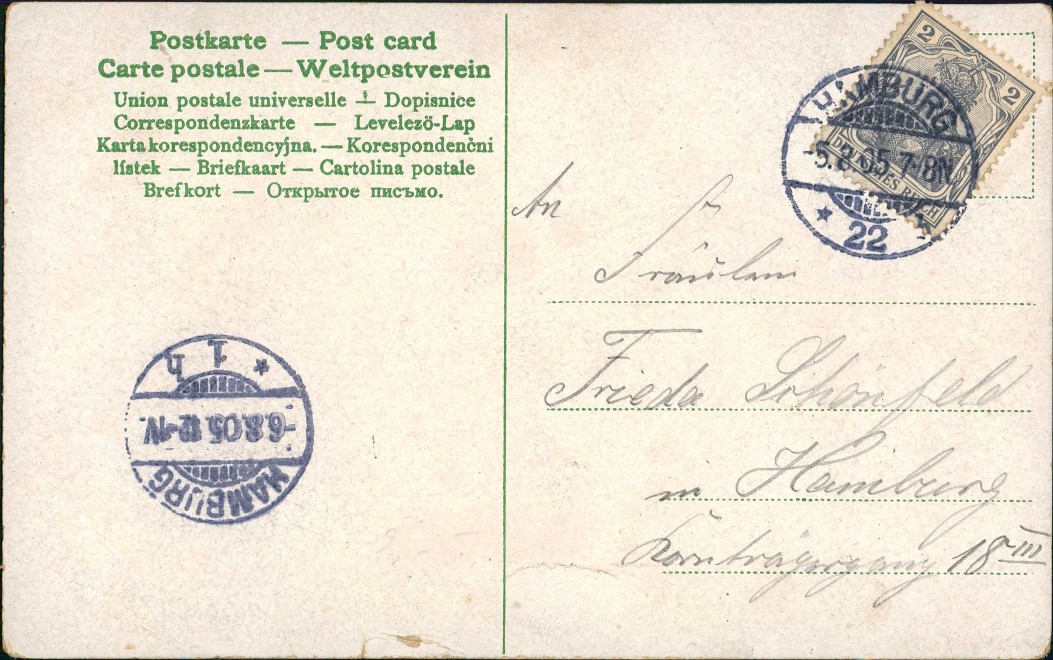 Postkarte — Post card
Carte postale — Weltpostverein
Union postale universelle — Dopisnice
Correspondenzkarte — Levelező-Lap
Karta korespondencyjna. — Korespondenčni
lístek — Briefkaart — Cartolina postale
Brefkort — Открытое письмо.
2
2
DEUTSCHES REICH
HAMBURG
-5.8.05.7-8N
* 22
An
Fräulein
Frieda Schönfeld
in Hamburg
Kornträgergang 18 III
* 1 h
-6.8.05.12-1V.
HAMBURG